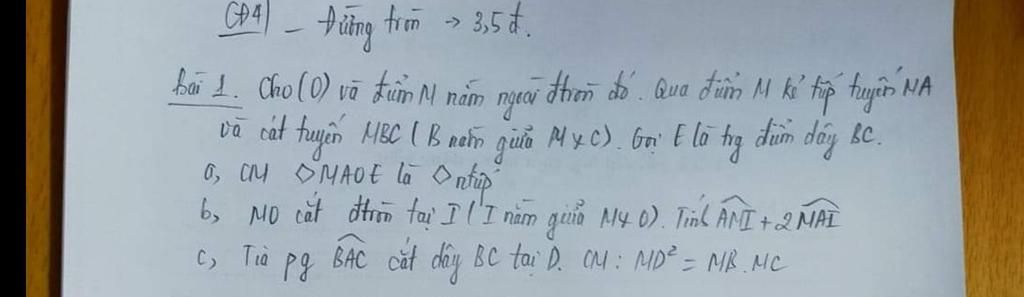 CĐ4 - Đường tròn → 3,5 đ.
Bài 1. Cho (O) và điểm M nằm ngoài đtròn đó. Qua điểm M kẻ tiếp tuyến MA
và cát tuyến MBC (B nằm giữa M & C). Gọi E là trg điểm dây BC.
a, CM ◇MAOE là ◇ntiếp
b, MO cắt đtròn tại I (I nằm giữa M & O). Tính \widehat{AMI} + 2\widehat{MAI}
c, Tia pg \widehat{BAC} cắt dây BC tại D. CM: MD² = MB.MC